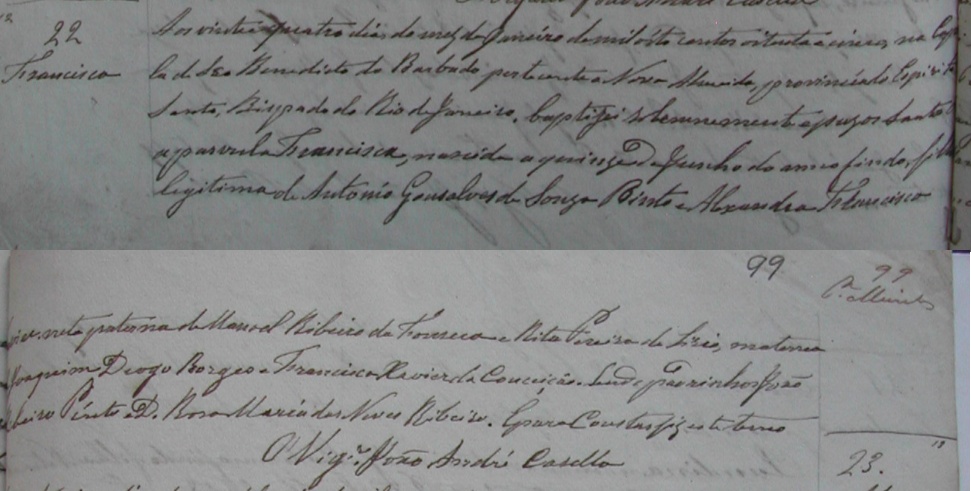 22
Francisca
Aos vinte e quatro dias do mez de Janeiro de mil oito centos oitenta e cinco, na Cap
la de São Benedicto do Barbado pertencente a Nova Almeida, provincia do Espirito
Santo, Bispado do Rio de Janeiro, baptizei solemnemente e puz os Santos
a parvula Francisca, nascida a quinze de Junho do anno findo, filha
legitima de Antonio Gonsalves de Souza Pinto e Alexandra Francisca
99
99
neta paterna de Manoel Ribeiro da Fonseca e Rita Pereira de materna
Joaquim Diogo Borges e Francisca Xavier da Conceição. Sendo padrinhos João
Ribeiro Pinto e D. Rosa Maria das Neves Ribeiro. E para constar fiz este termo
O Vigrº João André Casella
23.